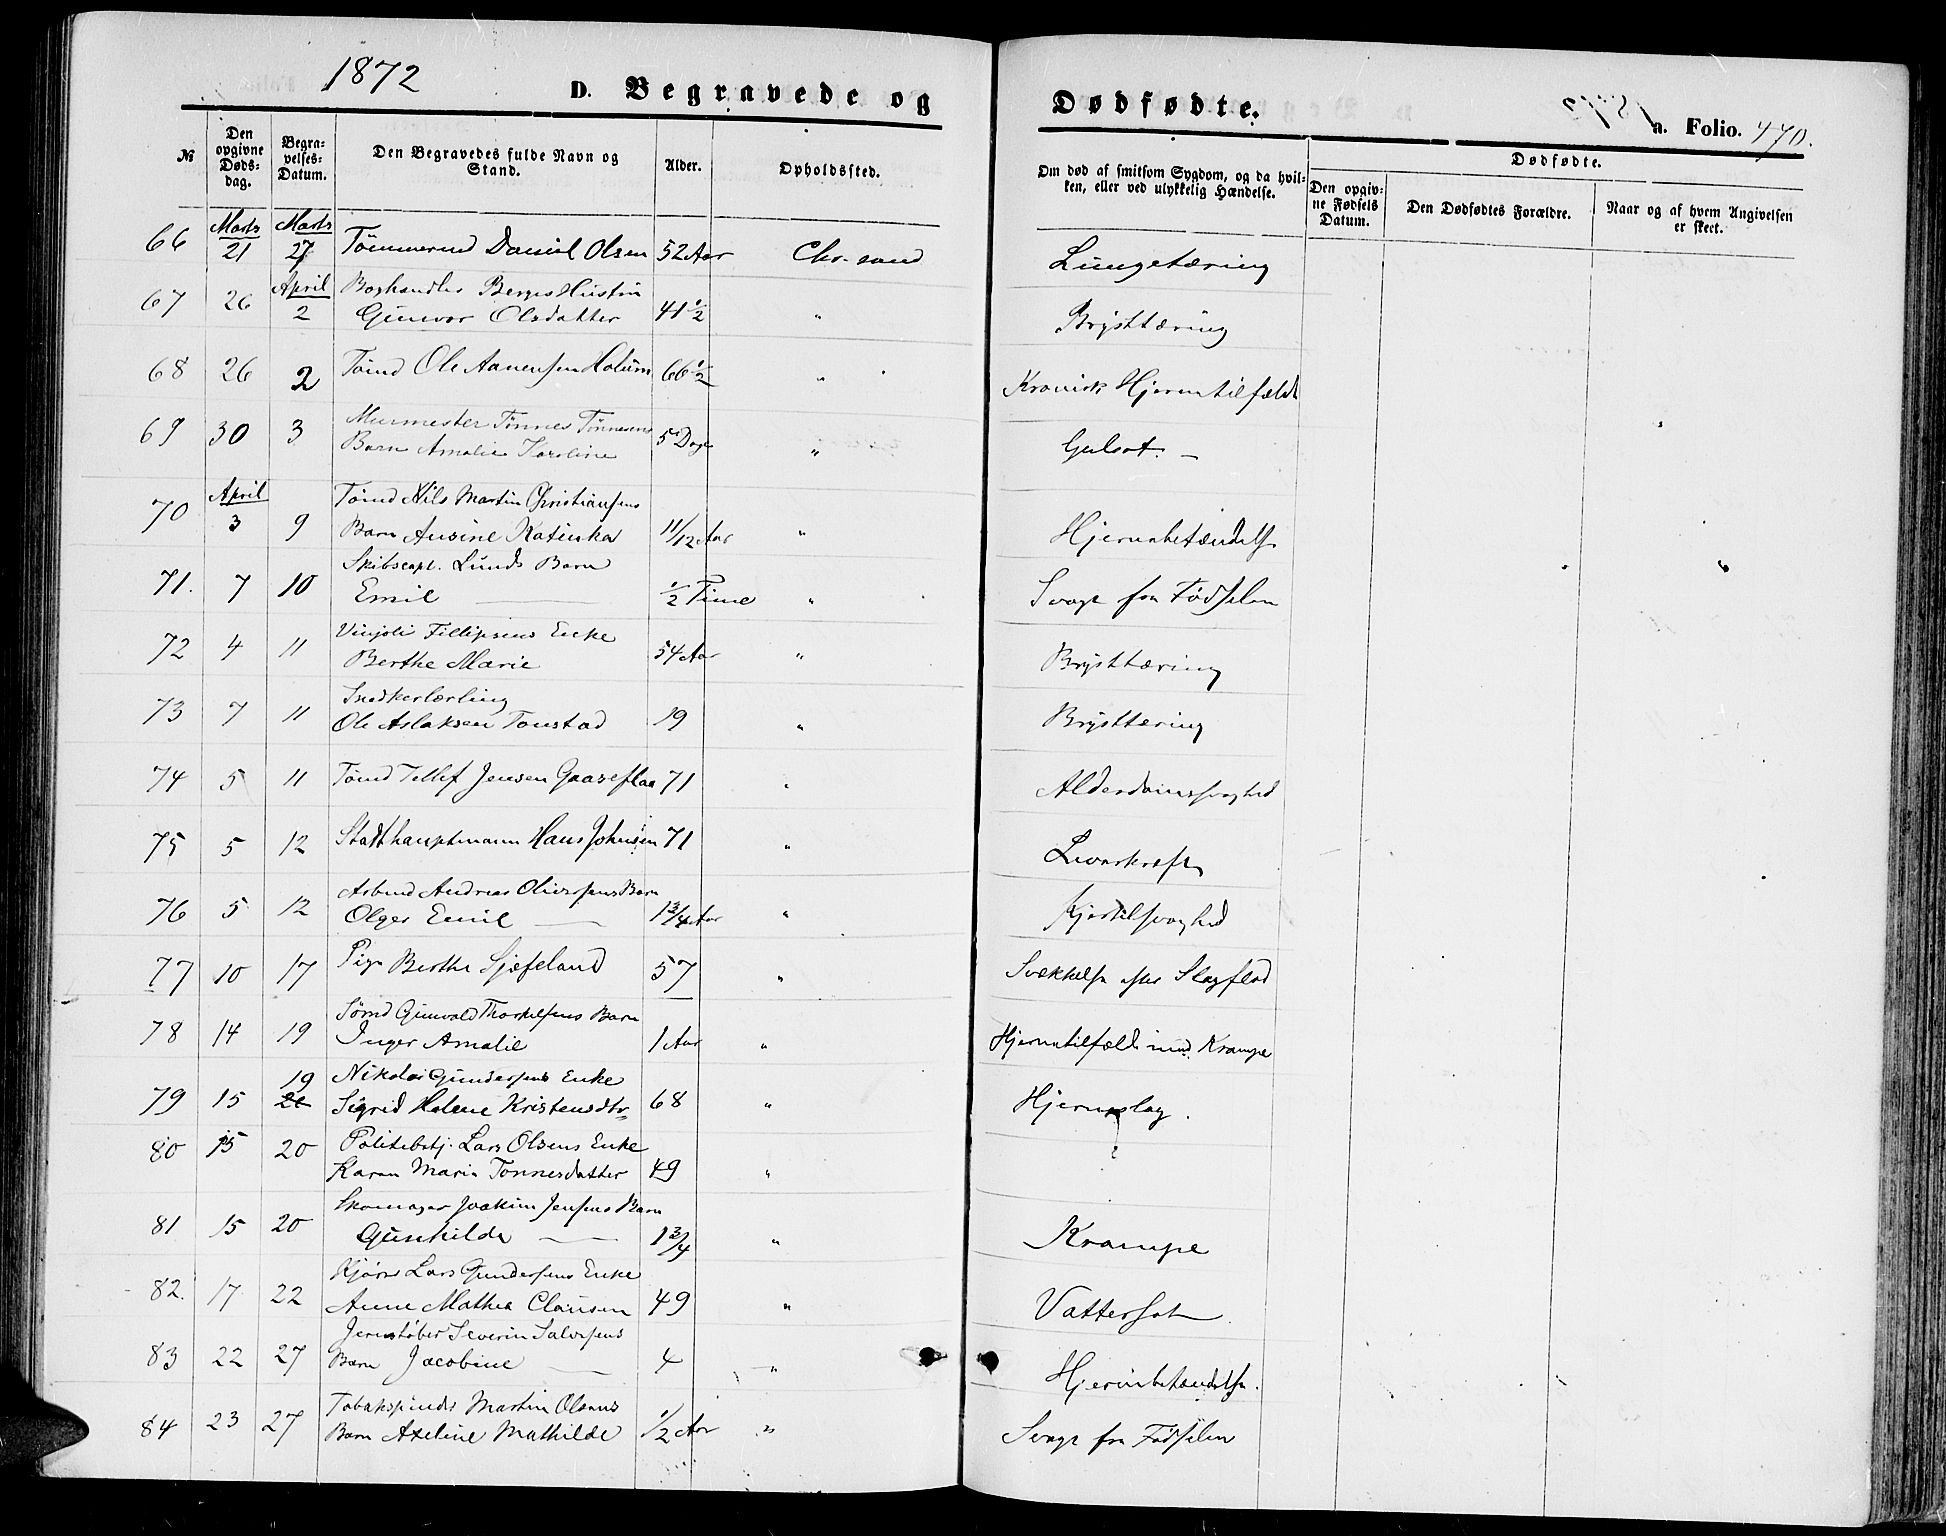 1872
D. Begravede og Dødfødte.
a. Folio. 470.
№
Den opgivne Døds-dag.
Begra-velses-Datum.
Den Begravedes fulde Navn og Stand.
Alder.
Opholdssted.
Om død af smitsom Sygdom, og da hvil-ken, eller ved ulykkelig Hændelse.
Dødfødte.
Den opgiv-ne Fødsels Datum.
Den Dødfødtes Forældre.
Naar og af hvem Angivelsen er skeet.
66 Marts 21 Marts 27 Tømmermd Daniel Olsen 52 Aar Chr.sand Lungetæring
67 26 April 2 Boghandler Berges Hustru
Gunvor Olsdatter 41 1/2 " Brysttæring
68 26 2 Tømd Ole Aanensen Holum 66 1/2 " Kronisk Hjernetilfælde
69 30 3 Murmester Tønnes Tønnesens
Barn Amalie Karoline 5 Dage " Gulsot. –
70 April 3 9 Tømd Nils Martin Christiansens
Barn Ausine Katinka 11/12 Aar " Hjernebetændelse
71. 7 10 Skibscapt. Lunds Barn
Emil — 1/2 Time " Svag fra Fødselen
72 4 11 Fillipsens Enke
Berthe Marie 54 Aar " Brysttæring
73 7 11 Snedkerlærling
Ole Aslaksen Tonstad 19 " Brysttæring
74 5 11 Tømd Tellef Jensen Gaaseflaa 71 " Alderdomssvaghed
75 5 12 Stadthauptmann Hans Johnsen 71 " Leverkræft
76 5 12 Arbmd Andreas Oliversens Barn
Olger Emil — 1 3/4 Aar " Kjertelsvaghed
77 10 17 Pige Berthe Sjæfeland 57 " Svækkelse efter Slagflod
78 14 19 Sømd Gunvald Thorkelsens Barn
Inger Amalie 1 Aar " Hjernetilfælde med Krampe
79 15 19 Nikolai Gundersens Enke
Sigrid Helene Kristensdtr 68 " Hjerneslag.
80 15 20 Politibetj. Lars Olsens Enke
Karen Marie Tønnesdatter 49 " ?
81 15 20 Skomager Joakim Jensens Barn
Gunhilde — 1 3/4 " Krampe
82. 17 22 Lars Gundersens Enke
Anne Mathea Clausen 49 " Vattersot
83 22 27 Jernstøber Severin Salvesens
Barn Jacobine — 4 " Hjernebetændelse.
84 23 27 Tobakspinder Martin Olsens
Barn Axeline Mathilde 1/2 Aar " Svag fra Fødselen